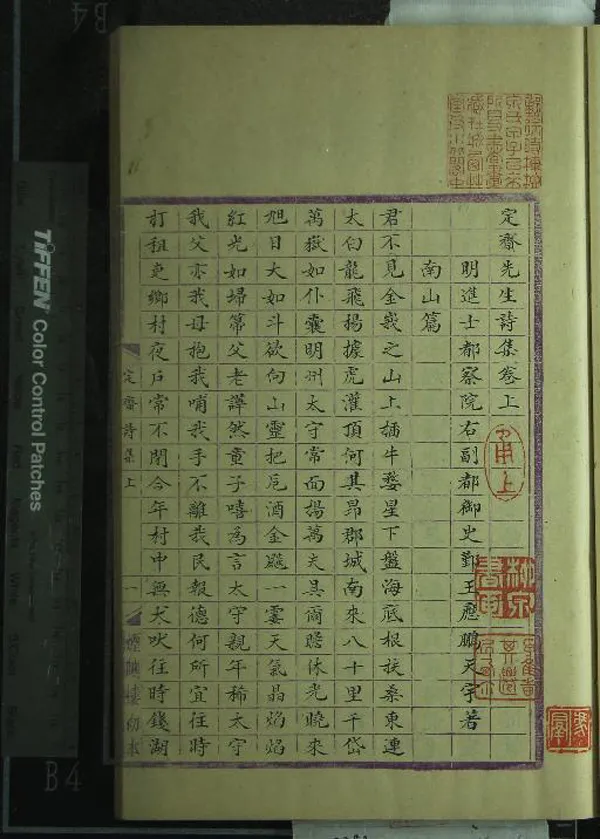 定齋先生詩集卷上
明進士都察院右副都御史鄞王應鵬天宇著
南山篇
君不見金峩之山上插牛婺星下盤海底根扶桑東連
太白龍飛揚據虎灌頂何其昂郡城南來八十里千岱
萬嶽如仆囊明州太守常面揚萬夫具爾瞻休光曉來
旭日大如斗欲向山靈把巵酒金飈一霎天氣晶焰焰
紅光如埽箒父老譁然童子嘻為言太守親年稀太守
我父亦我母抱我哺我手不離我民報德何所宜往時
打租吏鄉村夜戶常不閉今年村中無犬吠往時錢湖
定齋詩集上
一
煙嶼樓初本
甬上
柳泉書畫
TIFFEN Color Control Patches
B4
B4